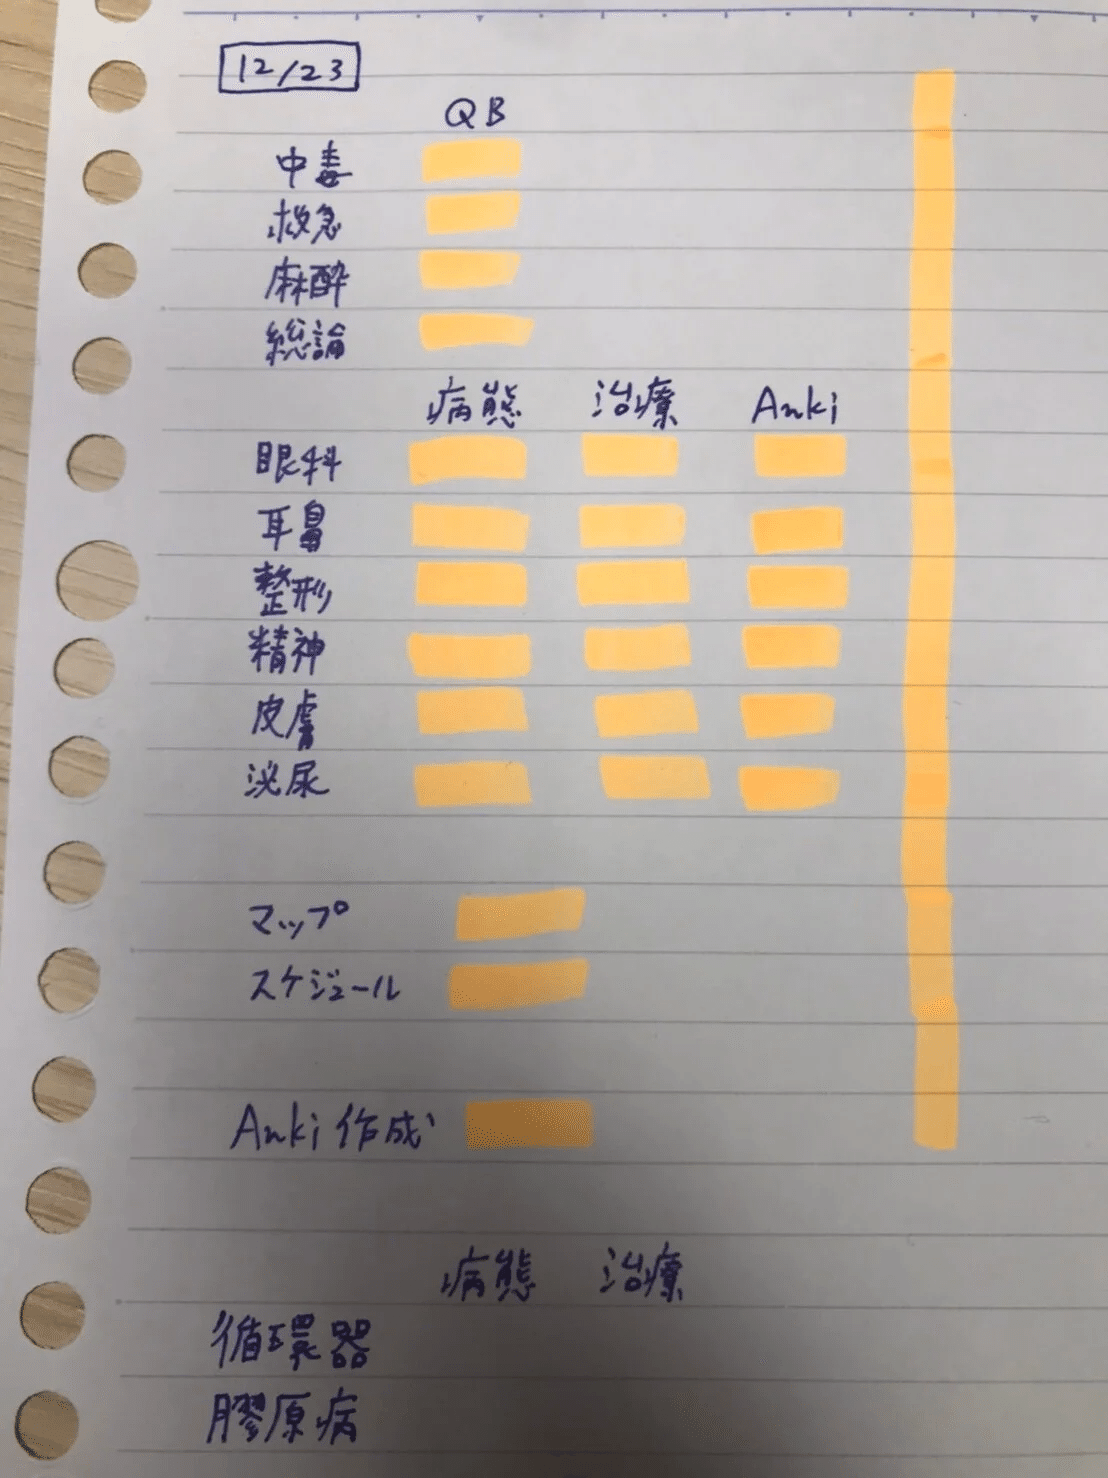 12/23
QB
中毒
救急
麻酔
総論
病態 治療 Anki
眼科
耳鼻
整形
精神
皮膚
泌尿
マップ
スケジュール
Anki作成
病態 治療
循環器
膠原病